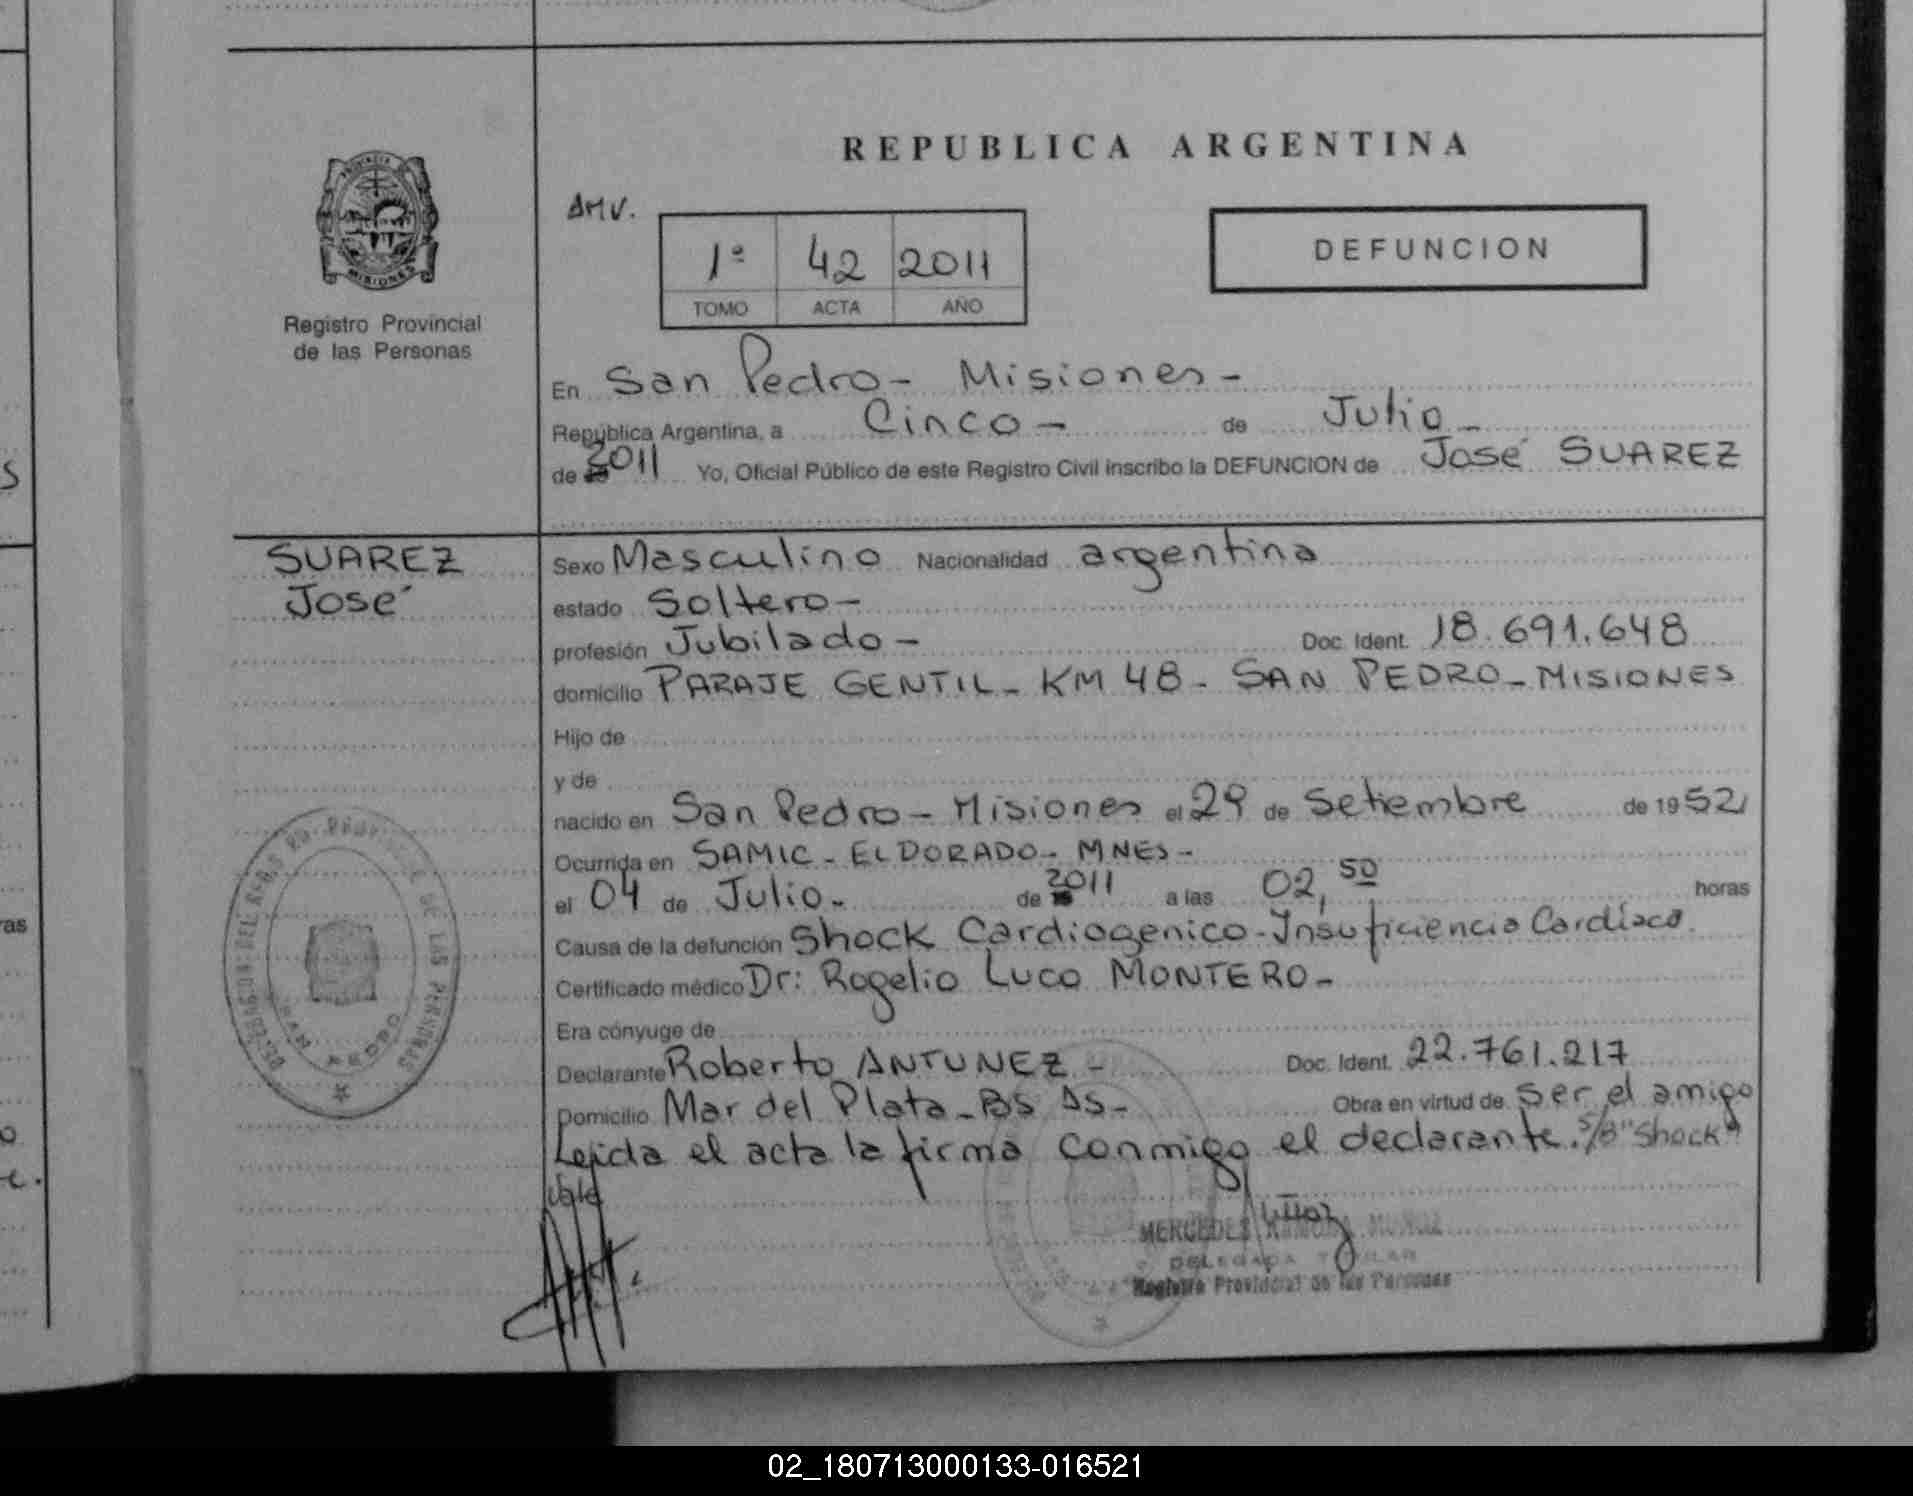 REPUBLICA ARGENTINA
PROVINCIA
MISIONES
Registro Provincial
de las Personas
AMV.
1º 42 2011
TOMO ACTA AÑO
DEFUNCION
En San Pedro - Misiones -
República Argentina, a Cinco - de Julio -
de 2011 Yo, Oficial Público de este Registro Civil inscribo la DEFUNCION de José SUAREZ
SUAREZ
José
Sexo Masculino Nacionalidad argentina
estado Soltero -
profesión Jubilado - Doc. Ident. 18.691.648
domicilio PARAJE GENTIL - KM 48 - SAN PEDRO - MISIONES
Hijo de
y de
nacido en San Pedro - Misiones el 29 de Setiembre de 1952
Ocurrida en SAMIC - ELDORADO - MNES -
el 04 de Julio - de 2011 a las 02,50 horas
Causa de la defunción Shock Cardiogenico - Insuficiencia Cardíaca.
Certificado médico Dr: Rogelio Luco MONTERO -
Era cónyuge de
Declarante Roberto ANTUNEZ - Doc. Ident. 22.761.217
Domicilio Mar del Plata - BS AS - Obra en virtud de ser el amigo
Leida el acta la firma conmigo el declarante. S/B "Shock"
Vale
SAN PEDRO
MERCEDES RAMONA MUÑOZ
DELEGADA TITULAR
Registro Provincial de las Personas
02_180713000133-016521